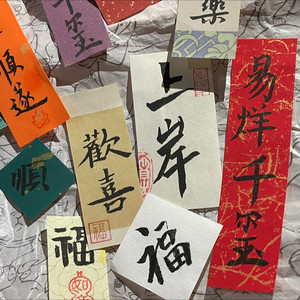 順遂
玺
樂
上岸
易烊千玺
歡喜
順
福
福